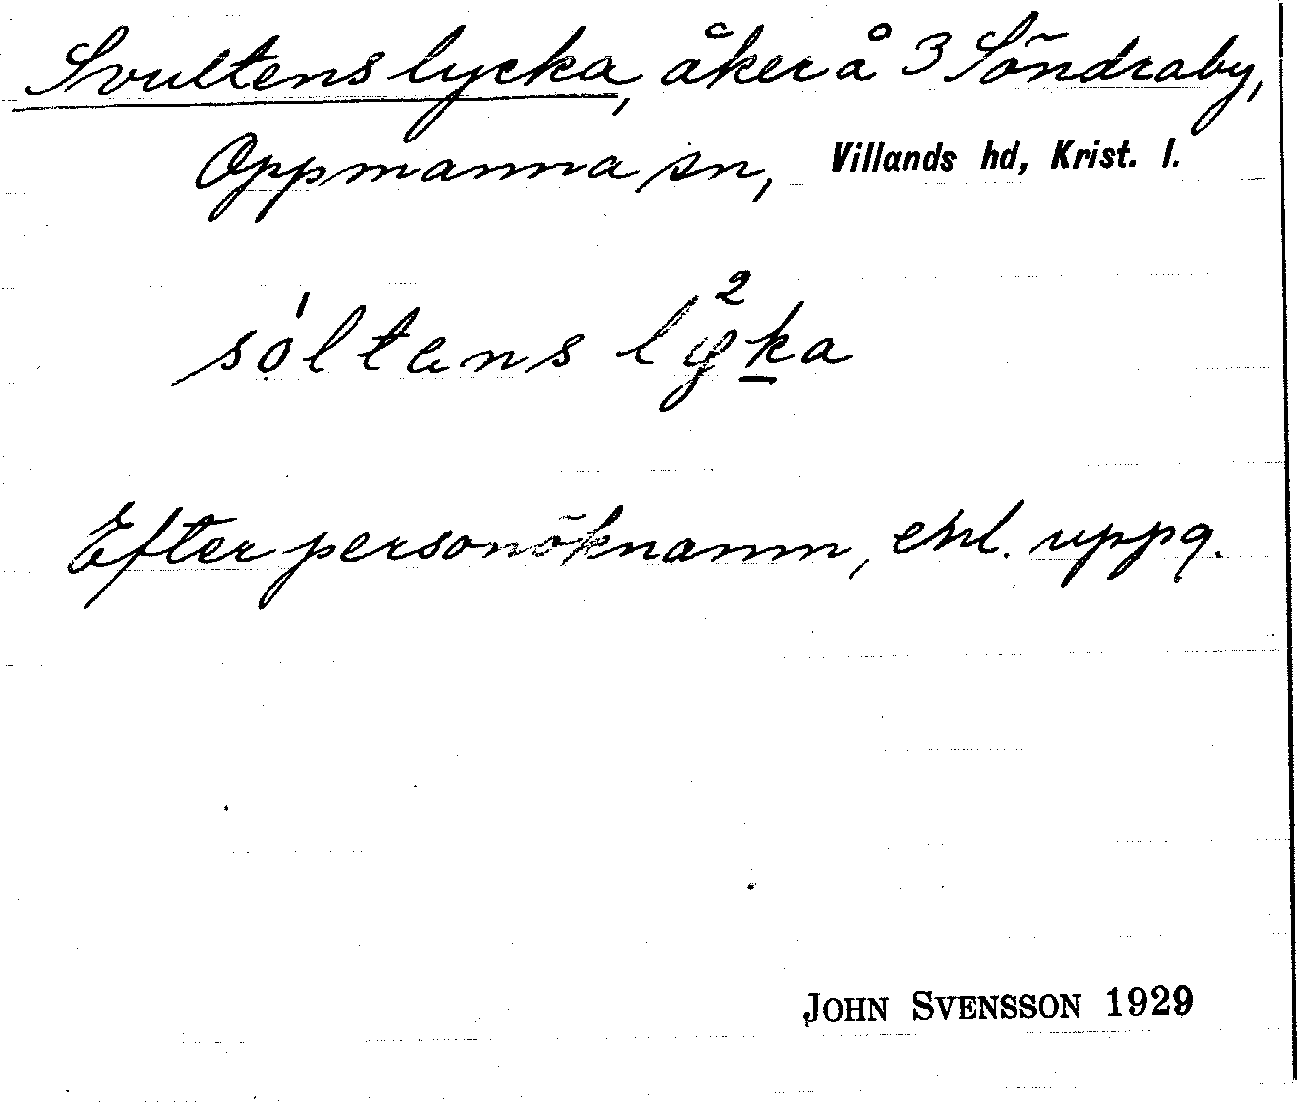 Svultens lycka, åker å 3 Söndraby,
Oppmanna sn, Villands hd, Krist. l.
so̍ltens ly²ḵa
Efter personöknamn, enl. uppg.
JOHN SVENSSON 1929